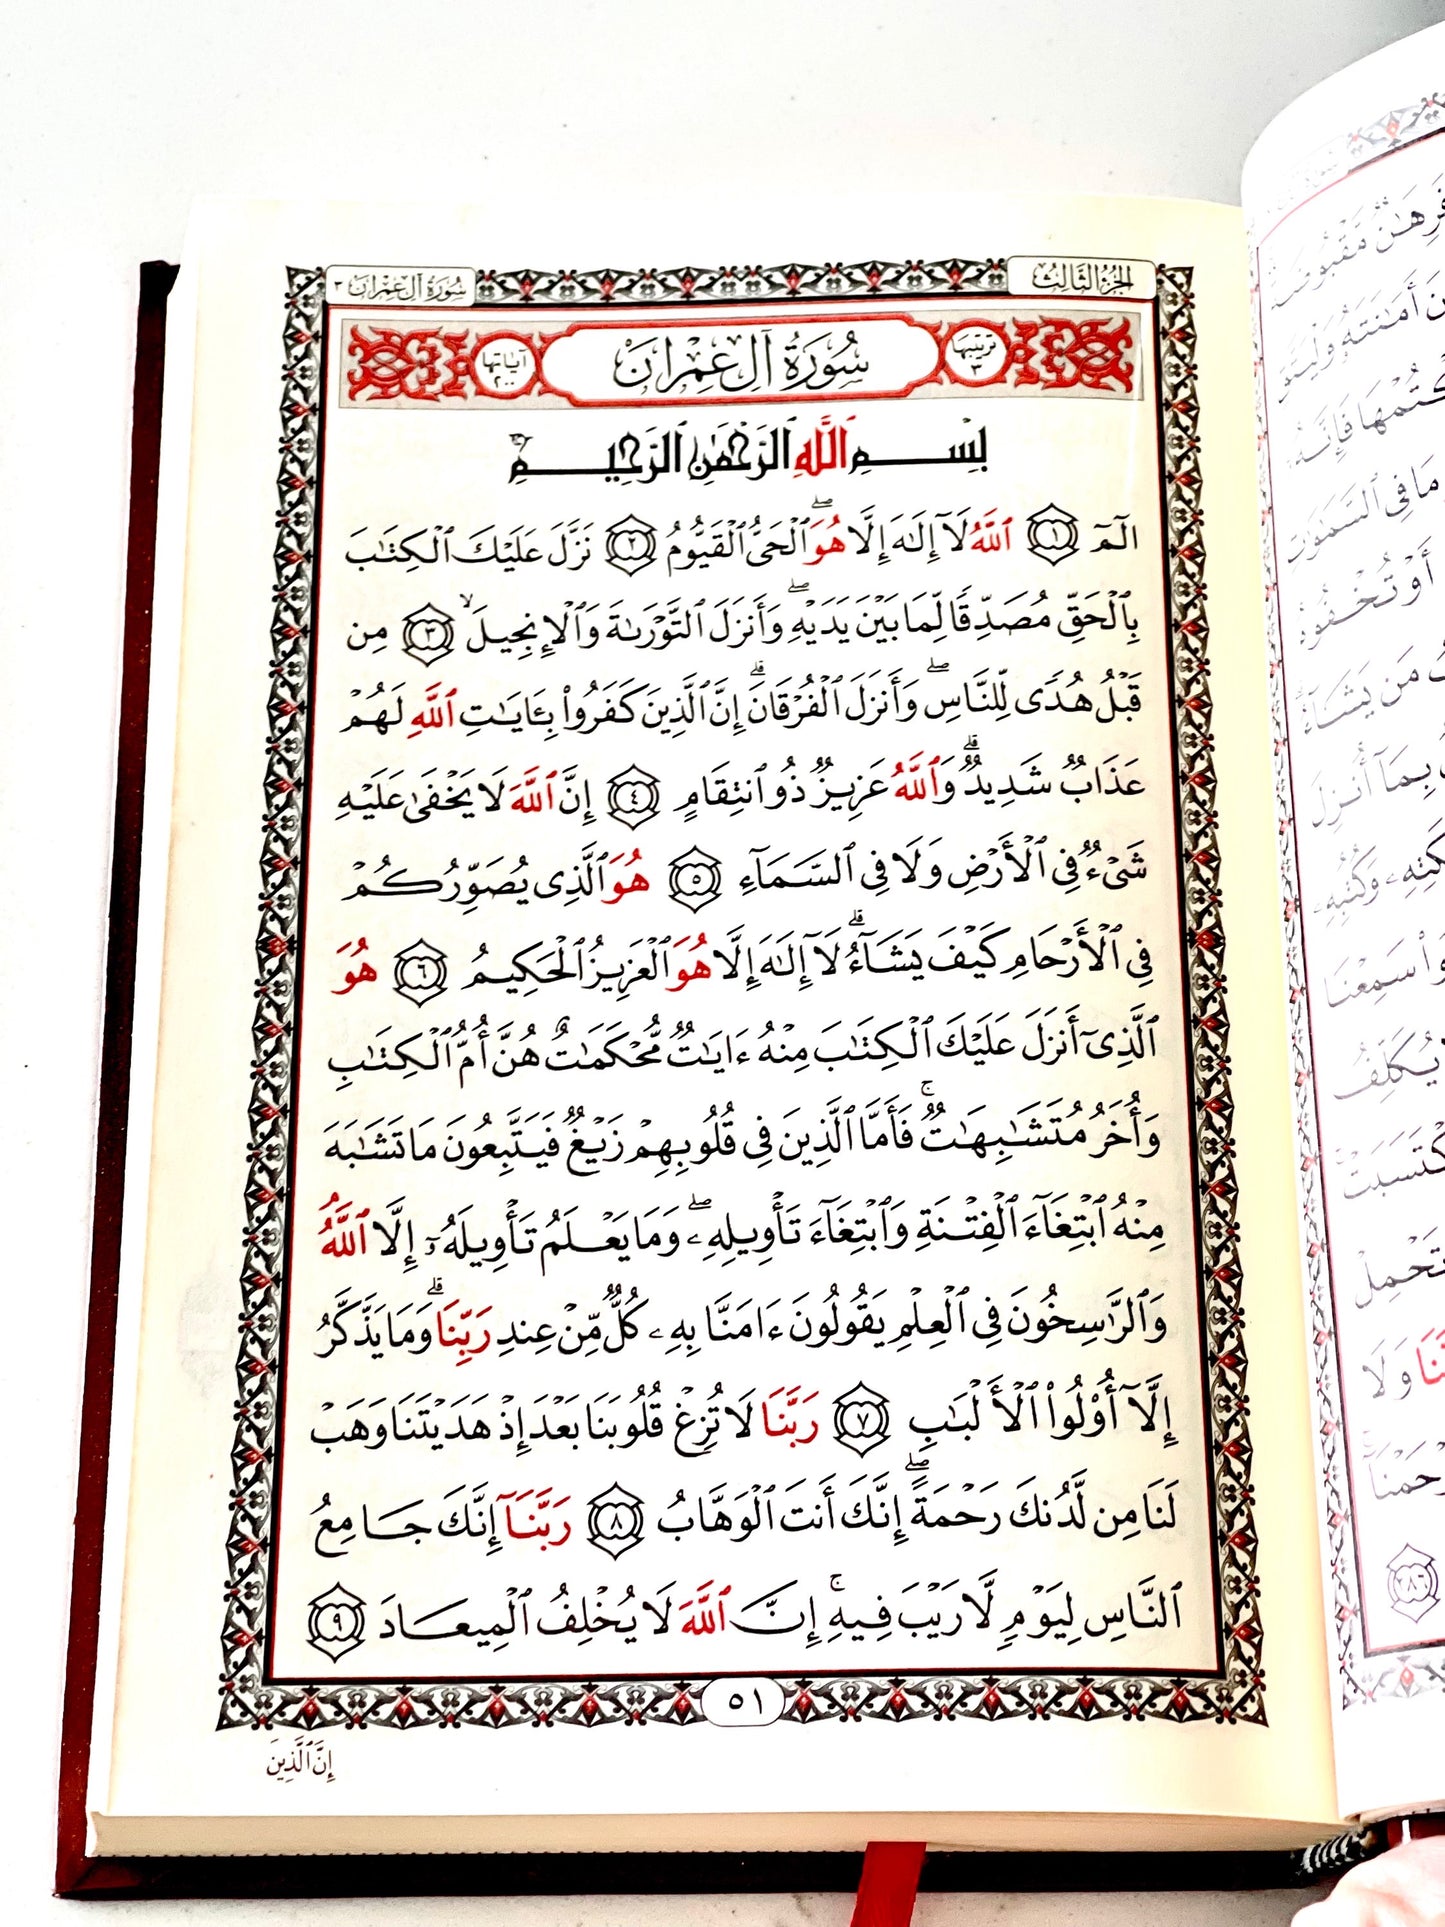 الجزء الثالث
سورة آل عمران ٣
ترتيبها ٣
سُورَةُ آلِ عِمْرَانَ
آياتها ٢٠٠
بِسْمِ ٱللَّهِ ٱلرَّحْمَٰنِ ٱلرَّحِيمِ
الٓمٓ ١ ٱللَّهُ لَآ إِلَٰهَ إِلَّا هُوَ ۖ ٱلْحَىُّ ٱلْقَيُّومُ ٢ نَزَّلَ عَلَيْكَ ٱلْكِتَٰبَ
بِٱلْحَقِّ مُصَدِّقًا لِّمَا بَيْنَ يَدَيْهِ ۖ وَأَنزَلَ ٱلتَّوْرَىٰةَ وَٱلْإِنجِيلَ ۙ ٣ مِن
قَبْلُ هُدًى لِّلنَّاسِ ۖ وَأَنزَلَ ٱلْفُرْقَانَ ۗ إِنَّ ٱلَّذِينَ كَفَرُوا۟ بِـَٔايَٰتِ ٱللَّهِ لَهُمْ
عَذَابٌ شَدِيدٌ ۗ وَٱللَّهُ عَزِيزٌ ذُو ٱنتِقَامٍ ٤ إِنَّ ٱللَّهَ لَا يَخْفَىٰ عَلَيْهِ
شَىْءٌ فِى ٱلْأَرْضِ وَلَا فِى ٱلسَّمَآءِ ٥ هُوَ ٱلَّذِى يُصَوِّرُكُمْ
فِى ٱلْأَرْحَامِ كَيْفَ يَشَآءُ ۗ لَآ إِلَٰهَ إِلَّا هُوَ ٱلْعَزِيزُ ٱلْحَكِيمُ ٦ هُوَ
ٱلَّذِىٓ أَنزَلَ عَلَيْكَ ٱلْكِتَٰبَ مِنْهُ ءَايَٰتٌ مُّحْكَمَٰتٌ هُنَّ أُمُّ ٱلْكِتَٰبِ
وَأُخَرُ مُتَشَٰبِهَٰتٌ ۚ فَأَمَّا ٱلَّذِينَ فِى قُلُوبِهِمْ زَيْغٌ فَيَتَّبِعُونَ مَا تَشَٰبَهَ
مِنْهُ ٱبْتِغَآءَ ٱلْفِتْنَةِ وَٱبْتِغَآءَ تَأْوِيلِهِۦ ۖ وَمَا يَعْلَمُ تَأْوِيلَهُۥٓ إِلَّا ٱللَّهُ
وَٱلرَّٰسِخُونَ فِى ٱلْعِلْمِ يَقُولُونَ ءَامَنَّا بِهِۦ كُلٌّ مِّنْ عِندِ رَبِّنَا ۗ وَمَا يَذَّكَّرُ
إِلَّآ أُو۟لُوا۟ ٱلْأَلْبَٰبِ ٧ رَبَّنَا لَا تُزِغْ قُلُوبَنَا بَعْدَ إِذْ هَدَيْتَنَا وَهَبْ
لَنَا مِن لَّدُنكَ رَحْمَةً ۖ إِنَّكَ أَنتَ ٱلْوَهَّابُ ٨ رَبَّنَآ إِنَّكَ جَامِعُ
ٱلنَّاسِ لِيَوْمٍ لَّا رَيْبَ فِيهِ ۚ إِنَّ ٱللَّهَ لَا يُخْلِفُ ٱلْمِيعَادَ ٩
٥١
إِنَّ ٱلَّذِينَ
فَرِهَٰنٌ مَّقْبُوضَةٌ
أَمَٰنَتَهُۥ وَلْيَتَّقِ
فَإِنَّهُۥٓ
مَا فِى ٱلسَّمَٰوَٰتِ
أَوْ تُخْفُوهُ
مَن يَشَآءُ
بِمَآ أُنزِلَ
وَكُتُبِهِۦ
سَمِعْنَا
يُكَلِّفُ
تَحْمِلْ
وَلَا
٢٨٦